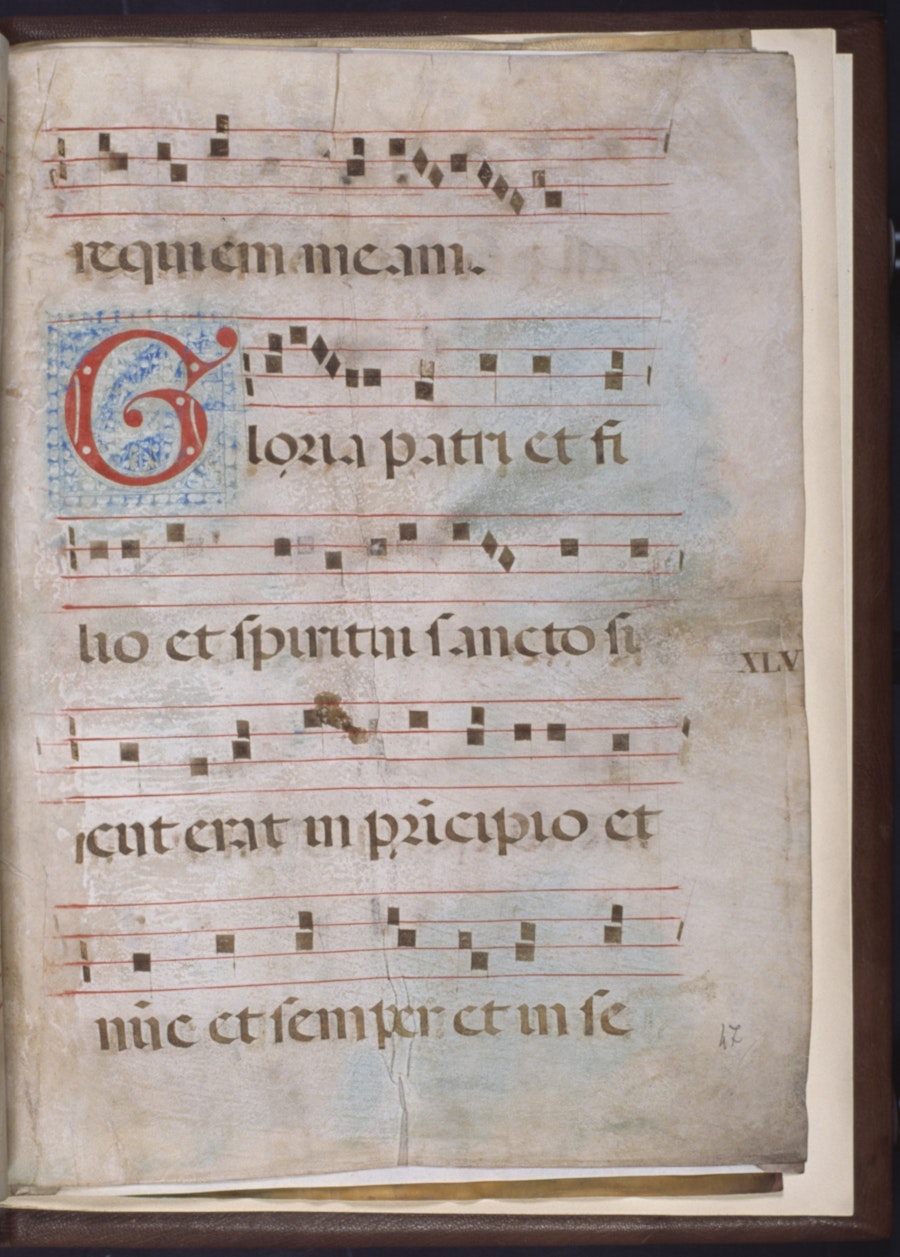 requiem meam.
Gloria patri et fi
lio et spiritui sancto si
XLV
icut erat in pr̄icipio et
nūc et semper et in se
47